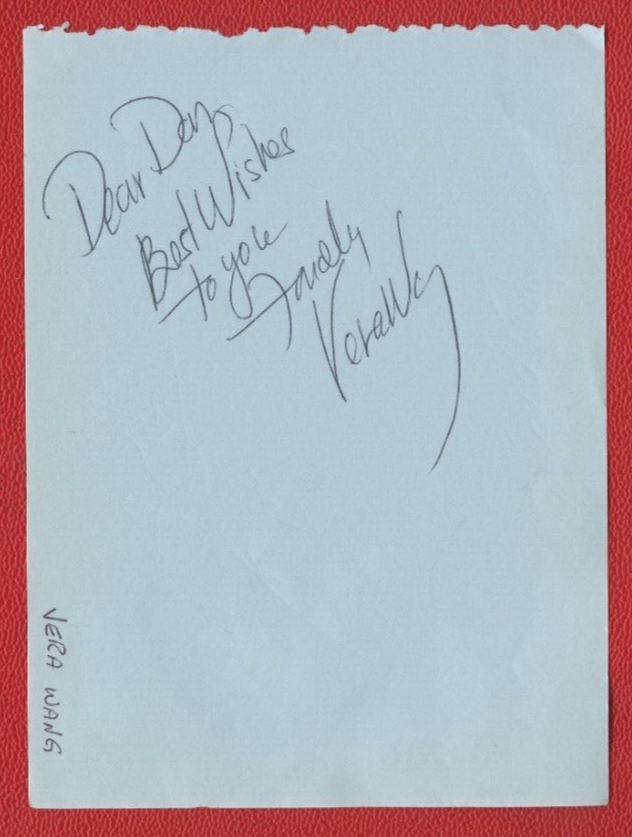 Dear Dan
Best Wishes
to you
Fondly
Vera Wang
VERA WANG